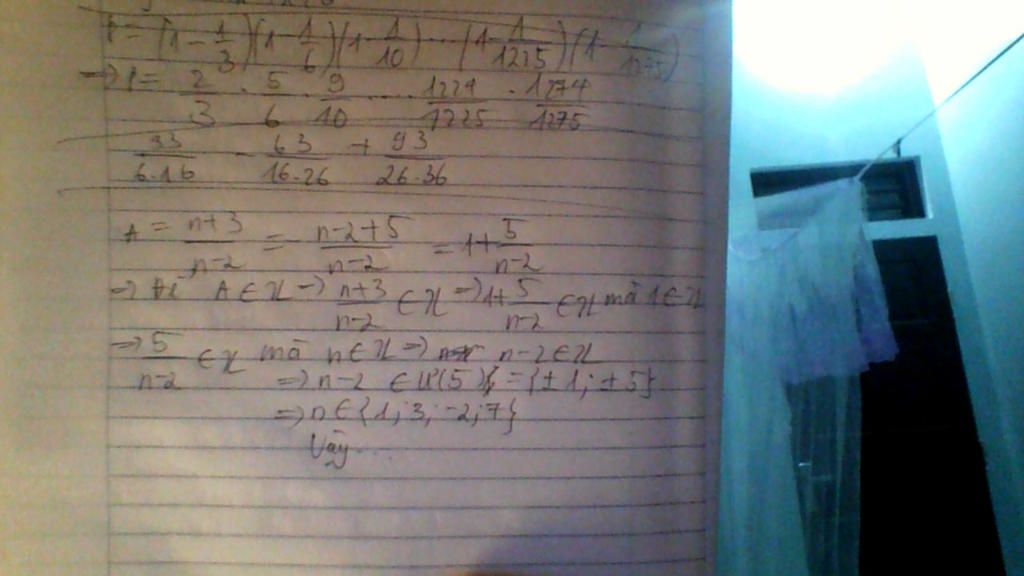 P = (1 - 1/3)(1 - 1/6)(1 - 1/10) ... (1 - 1/1225)(1 - 1/1275)
=> P = 2/3 . 5/6 . 9/10 ... 1224/1225 . 1274/1275
33/6.16 - 63/16.26 + 93/26.36
A = n+3/n-2 = n-2+5/n-2 = 1 + 5/n-2
=> Để A ∈ Z => n+3/n-2 ∈ Z => 1 + 5/n-2 ∈ Z mà 1 ∈ Z
=> 5/n-2 ∈ Z mà n ∈ Z => n-2 ∈ Z
=> n-2 ∈ Ư(5) = {±1; ±5}
=> n ∈ {1; 3; -2; 7}
Vậy ...